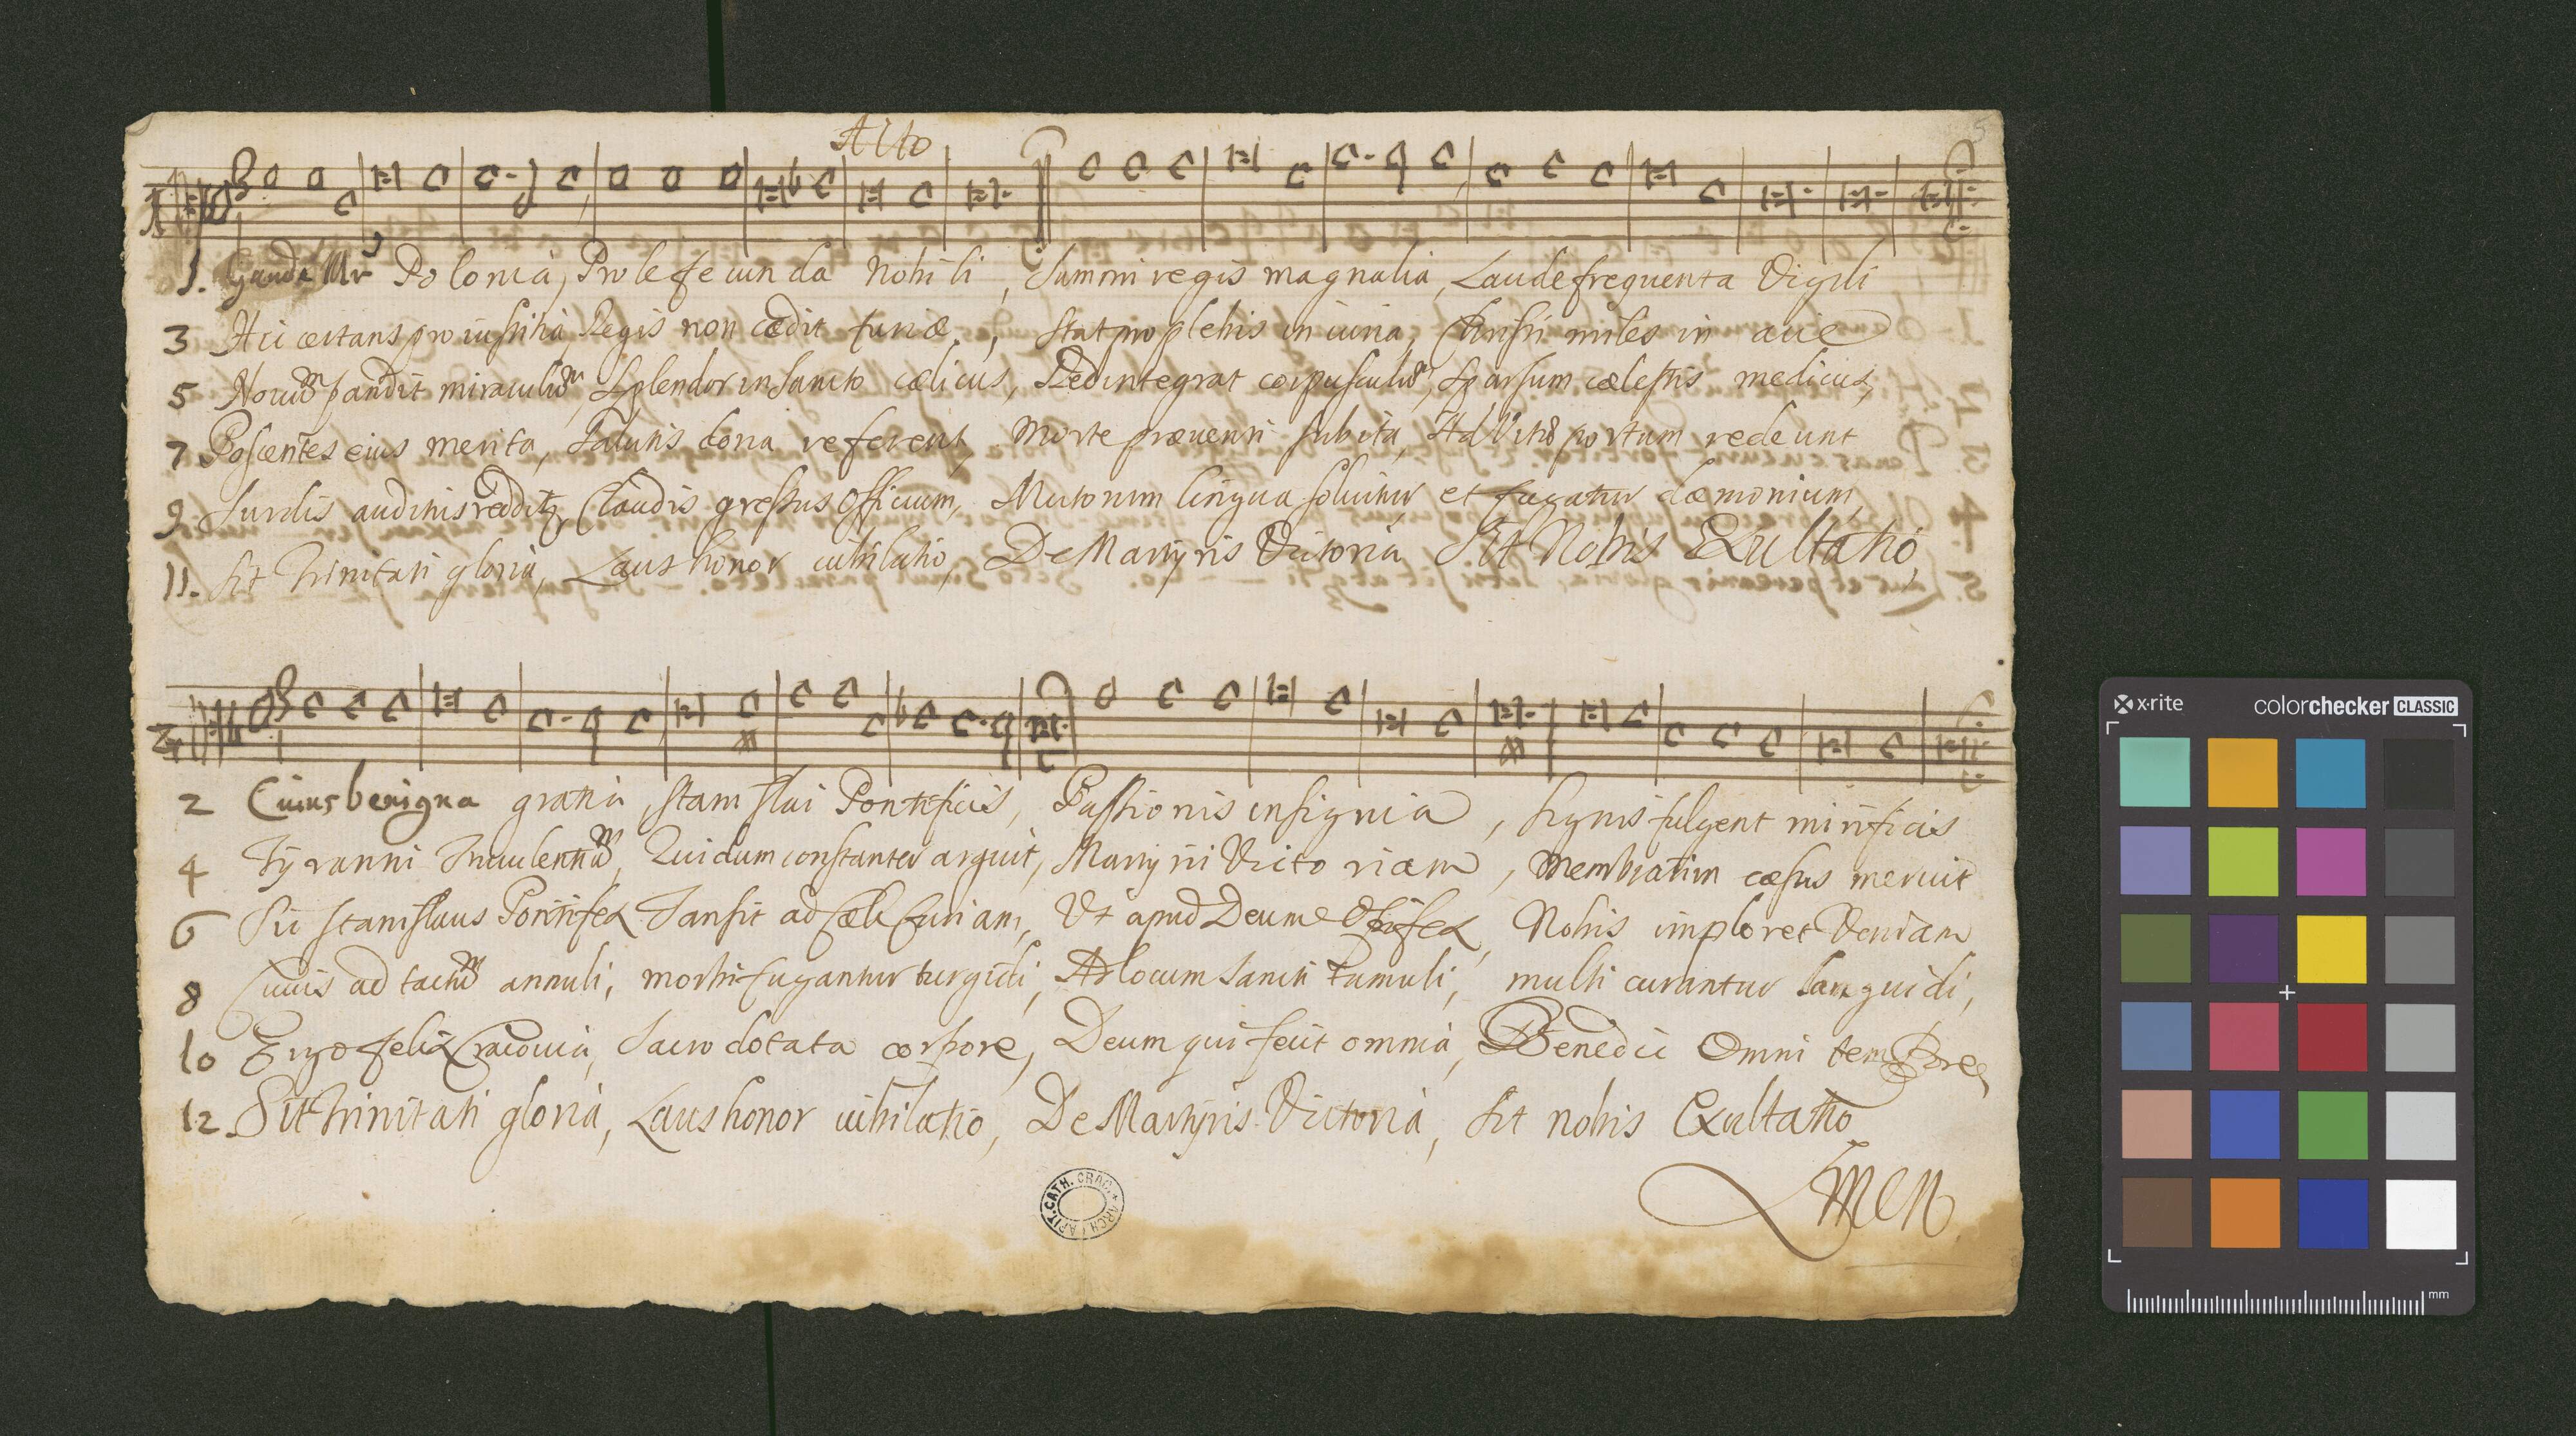 Alto
5
1. Gaude Mr Polonia, Prole fecunda Nobili, Summi regis magnalia, Laude frequenta Vigili
3 Hic certans pro iustitia, Regis non cædit furiæ, Stat pro plebis iniuria, Christi miles in acie
5 Novũm pandit miraculũm, Splendor in Sancto cælicus, Redintegrat corpusculũm, Sparsum cælestis medicus,
7 Poscentes eius merita, Salutis dona referent, Morte præuenti subita, Ad Vitæ portum redeunt
9. Surdis auditus redditr, Claudis gressus Officium, Mutorum lingua soluitur, et fugatur dæmonium,
11. Sit Trinitati gloria, Laus honor iubilatio, De Martyris Victoria Sit Nobis Exultatio,
2 Cuius benigna gratia, Stanislai Pontificis, Passionis insignia, Signis fulgent mirificis
4 Tyranni Truculentiãm, Qui dum constanter arguit, Martyrii Victoriam, Membratim cæsus meruit
6 Sic Stanislaus Pontifex Transit ad Cæli Curiam, Vt apud Deum Opifex, Nobis imploret Veniam
8 Cuius ad tactũm annuli, morbi fugantur turgidi, Ad locum Sancti tumuli, multi curantur languidi,
10 Ergo felix Cracovia, Sacro dotata corpore, Deum qui fecit omnia, Benedic Omni tempore
12. Sit Trinitati gloria, Laus honor iubilatio, De Martyris Victoria, Sit nobis Exultatio
Amen
ARCH. CAPIT. CATH. CRAC.
x·rite colorchecker CLASSIC
mm